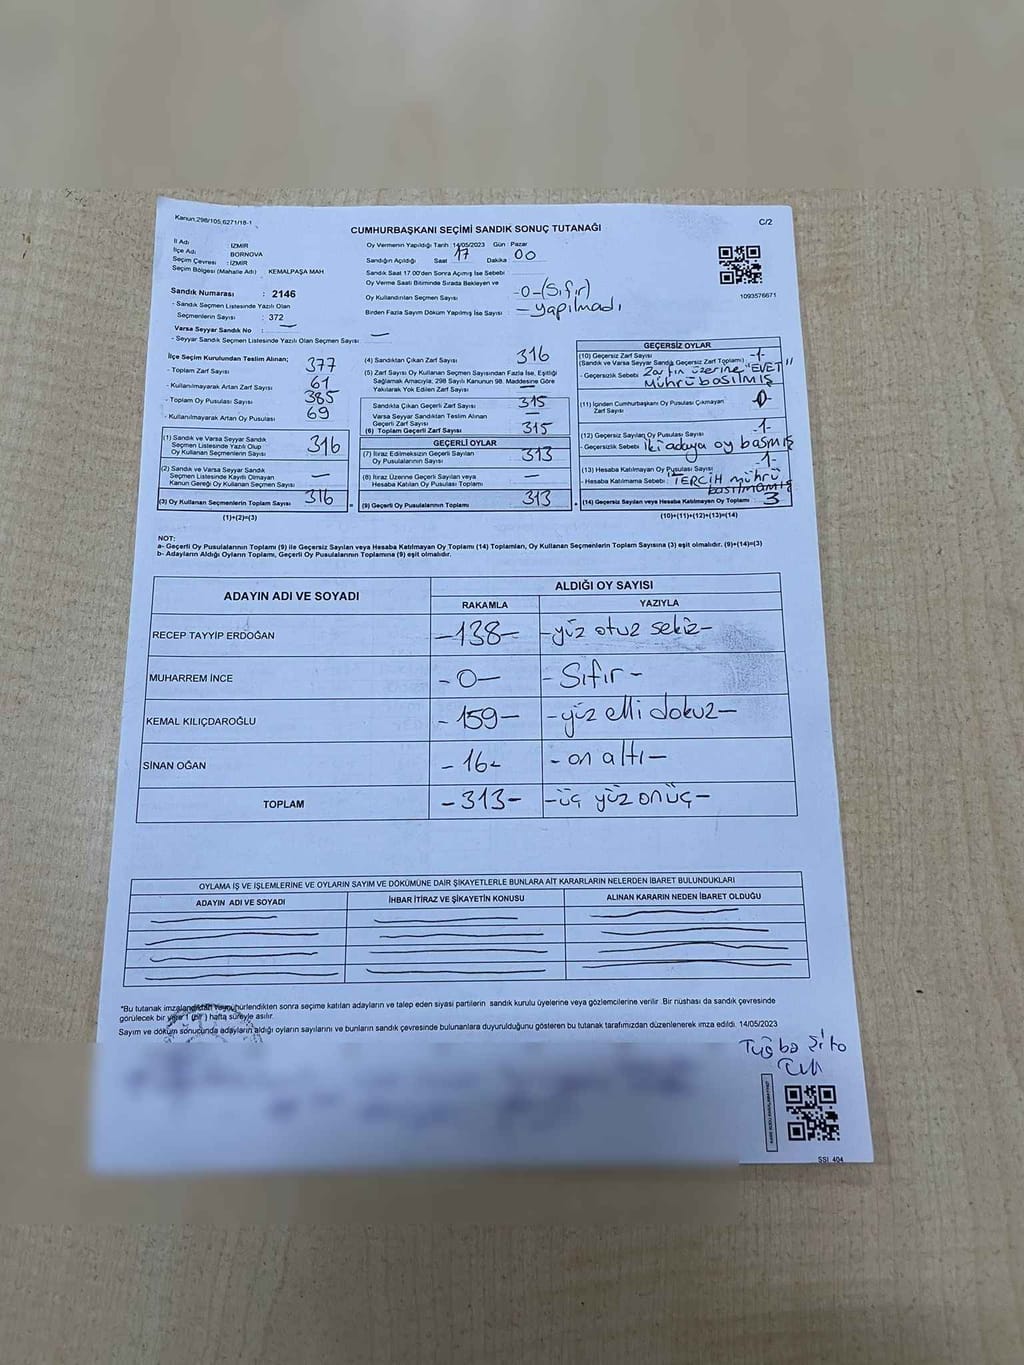 Kanun:298/105,6271/18-1
C/2
CUMHURBAŞKANI SEÇİMİ SANDIK SONUÇ TUTANAĞI
İl Adı : İZMİR
İlçe Adı : BORNOVA
Seçim Çevresi : İZMİR
Seçim Bölgesi (Mahalle Adı) : KEMALPAŞA MAH
Sandık Numarası : 2146
- Sandık Seçmen Listesinde Yazılı Olan
Seçmenlerin Sayısı : 372
Varsa Seyyar Sandık No : —
- Seyyar Sandık Seçmen Listesinde Yazılı Olan Seçmen Sayısı : —
Oy Vermenin Yapıldığı Tarih : 14/05/2023 Gün : Pazar
Sandığın Açıldığı Saat 17 Dakika 00
Sandık Saat 17:00'den Sonra Açılmış İse Sebebi
Oy Verme Saati Bitiminde Sırada Bekleyen ve
Oy Kullandırılan Seçmen Sayısı -0-(Sıfır)
Birden Fazla Sayım Döküm Yapılmış İse Sayısı : - yapılmadı
1093576671
İlçe Seçim Kurulundan Teslim Alınan;
- Toplam Zarf Sayısı 377
- Kullanılmayarak Artan Zarf Sayısı 61
- Toplam Oy Pusulası Sayısı 385
- Kullanılmayarak Artan Oy Pusulası 69
(1) Sandık ve Varsa Seyyar Sandık
Seçmen Listesinde Yazılı Olup
Oy Kullanan Seçmenlerin Sayısı 316
(2) Sandık ve Varsa Seyyar Sandık
Seçmen Listesinde Kayıtlı Olmayan
Kanun Gereği Oy Kullanan Seçmen Sayısı —
(3) Oy Kullanan Seçmenlerin Toplam Sayısı 316
(1)+(2)=(3)
(4) Sandıktan Çıkan Zarf Sayısı 316
(5) Zarf Sayısı Oy Kullanan Seçmen Sayısından Fazla İse, Eşitliği
Sağlamak Amacıyla, 298 Sayılı Kanunun 98. Maddesine Göre
Yakılarak Yok Edilen Zarf Sayısı —
Sandıkta Çıkan Geçerli Zarf Sayısı 315
Varsa Seyyar Sandıktan Teslim Alınan
Geçerli Zarf Sayısı —
(6) Toplam Geçerli Zarf Sayısı 315
GEÇERLİ OYLAR
(7) İtiraz Edilmeksizin Geçerli Sayılan
Oy Pusulalarının Sayısı 313
(8) İtiraz Üzerine Geçerli Sayılan veya
Hesaba Katılan Oy Pusulası Toplamı —
(9) Geçerli Oy Pusulalarının Toplamı 313
GEÇERSİZ OYLAR
(10) Geçersiz Zarf Sayısı
(Sandık ve Varsa Seyyar Sandık Geçersiz Zarf Toplamı) -1-
- Geçersizlik Sebebi : Zarfın üzerine "EVET"
Mührü basılmış
(11) İçinden Cumhurbaşkanı Oy Pusulası Çıkmayan
Zarf Sayısı -0-
(12) Geçersiz Sayılan Oy Pusulası Sayısı -1-
- Geçersizlik Sebebi : iki adaya oy basmış
(13) Hesaba Katılmayan Oy Pusulası Sayısı -1-
- Hesaba Katılmama Sebebi : TERCİH mührü
basılmamış
(14) Geçersiz Sayılan veya Hesaba Katılmayan Oy Toplamı 3
(10)+(11)+(12)+(13)=(14)
NOT:
a- Geçerli Oy Pusulalarının Toplamı (9) ile Geçersiz Sayılan veya Hesaba Katılmayan Oy Toplamı (14) Toplamları, Oy Kullanan Seçmenlerin Toplam Sayısına (3) eşit olmalıdır. (9)+(14)=(3)
b- Adayların Aldığı Oyların Toplamı, Geçerli Oy Pusulalarının Toplamına (9) eşit olmalıdır.
ADAYIN ADI VE SOYADI ALDIĞI OY SAYISI
RAKAMLA YAZIYLA
RECEP TAYYİP ERDOĞAN -138- -yüz otuz sekiz-
MUHARREM İNCE -0- -Sıfır-
KEMAL KILIÇDAROĞLU -159- -yüz elli dokuz-
SİNAN OĞAN -16- -on altı-
TOPLAM -313- -üç yüz onüç-
OYLAMA İŞ VE İŞLEMLERİNE VE OYLARIN SAYIM VE DÖKÜMÜNE DAİR ŞİKAYETLERLE BUNLARA AİT KARARLARIN NELERDEN İBARET BULUNDUKLARI
ADAYIN ADI VE SOYADI İHBAR İTİRAZ VE ŞİKAYETİN KONUSU ALINAN KARARIN NEDEN İBARET OLDUĞU
*Bu tutanak imzalandıktan ve mühürlendikten sonra seçime katılan adayların ve talep eden siyasi partilerin sandık kurulu üyelerine veya gözlemcilerine verilir. Bir nüshası da sandık çevresinde
görülecek bir yere 1 (bir) hafta süreyle asılır.
Sayım ve döküm sonucunda adayların aldığı oyların sayılarını ve bunların sandık çevresinde bulunanlara duyurulduğunu gösteren bu tutanak tarafımızdan düzenlenerek imza edildi. 14/05/2023
SSI_404